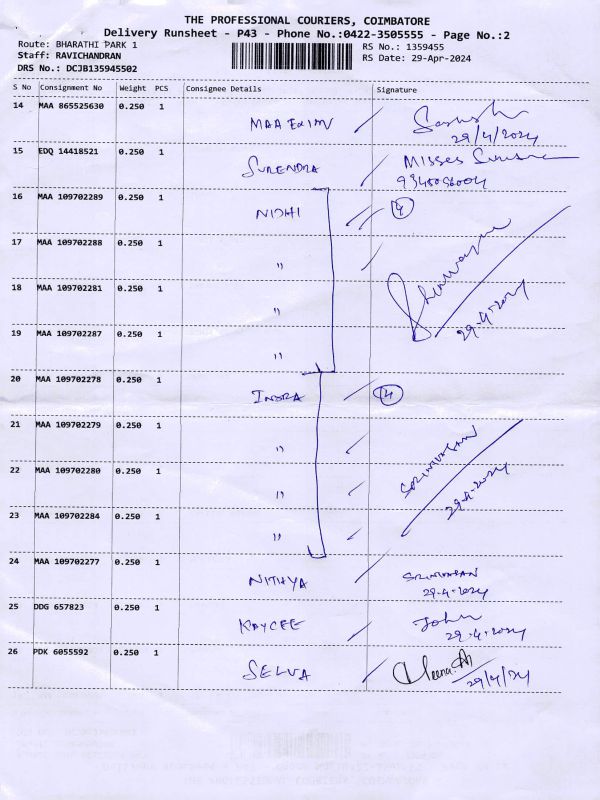 THE PROFESSIONAL COURIERS, COIMBATORE
Delivery Runsheet - P43 - Phone No.:0422-3505555 - Page No.:2
Route: BHARATHI PARK 1 RS No.: 1359455
Staff: RAVICHANDRAN RS Date: 29-Apr-2024
DRS No.: DCJB135945502
S No Consignment No Weight PCS Consignee Details Signature
14 MAA 865525630 0.250 1 MAA EXIM
29/4/2024
15 EDQ 14418521 0.250 1 SURENDRA Misses
16 MAA 109702289 0.250 1 NIDHI 4
17 MAA 109702288 0.250 1 "
18 MAA 109702281 0.250 1 "
29-4-2024
19 MAA 109702287 0.250 1 "
20 MAA 109702278 0.250 1 INDRA 4
21 MAA 109702279 0.250 1 "
SRINIVASAN
22 MAA 109702280 0.250 1 "
29-4-2024
23 MAA 109702284 0.250 1 "
24 MAA 109702277 0.250 1 NITHYA SRINIVASAN
29-4-2024
25 DDG 657823 0.250 1 KAYCEE John
29-4-2024
26 PDK 6055592 0.250 1 SELVA
29/4/24